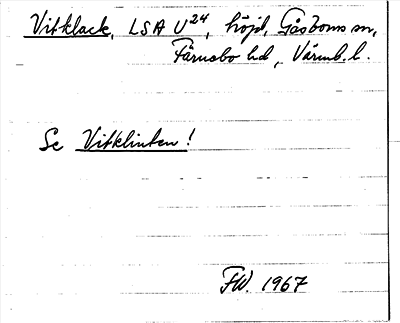 Vitklack, LSA U²⁴, höjd, Gåsborns sn,
Färnebo hd, Värml. l.
Se Vitklinten!
FW. 1967